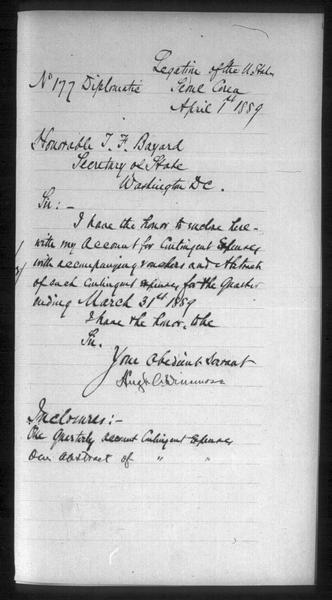 Legation of the U. States
No 177 Diplomatic Seoul Corea
April 1st 1889
Honorable T. F. Bayard
Secretary of State
Washington D.C.
Sir:-
I have the honor to enclose here-
with my account for Contingent Expenses
with accompanying vouchers and Abstract
of such Contingent expenses for the Quarter
ending March 31st 1889
I have the honor, to be
Sir,
Your Obedient Servant
Hugh A. Dinsmore
Inclosures:-
One Quarterly account Contingent Expenses
One abstract of " "